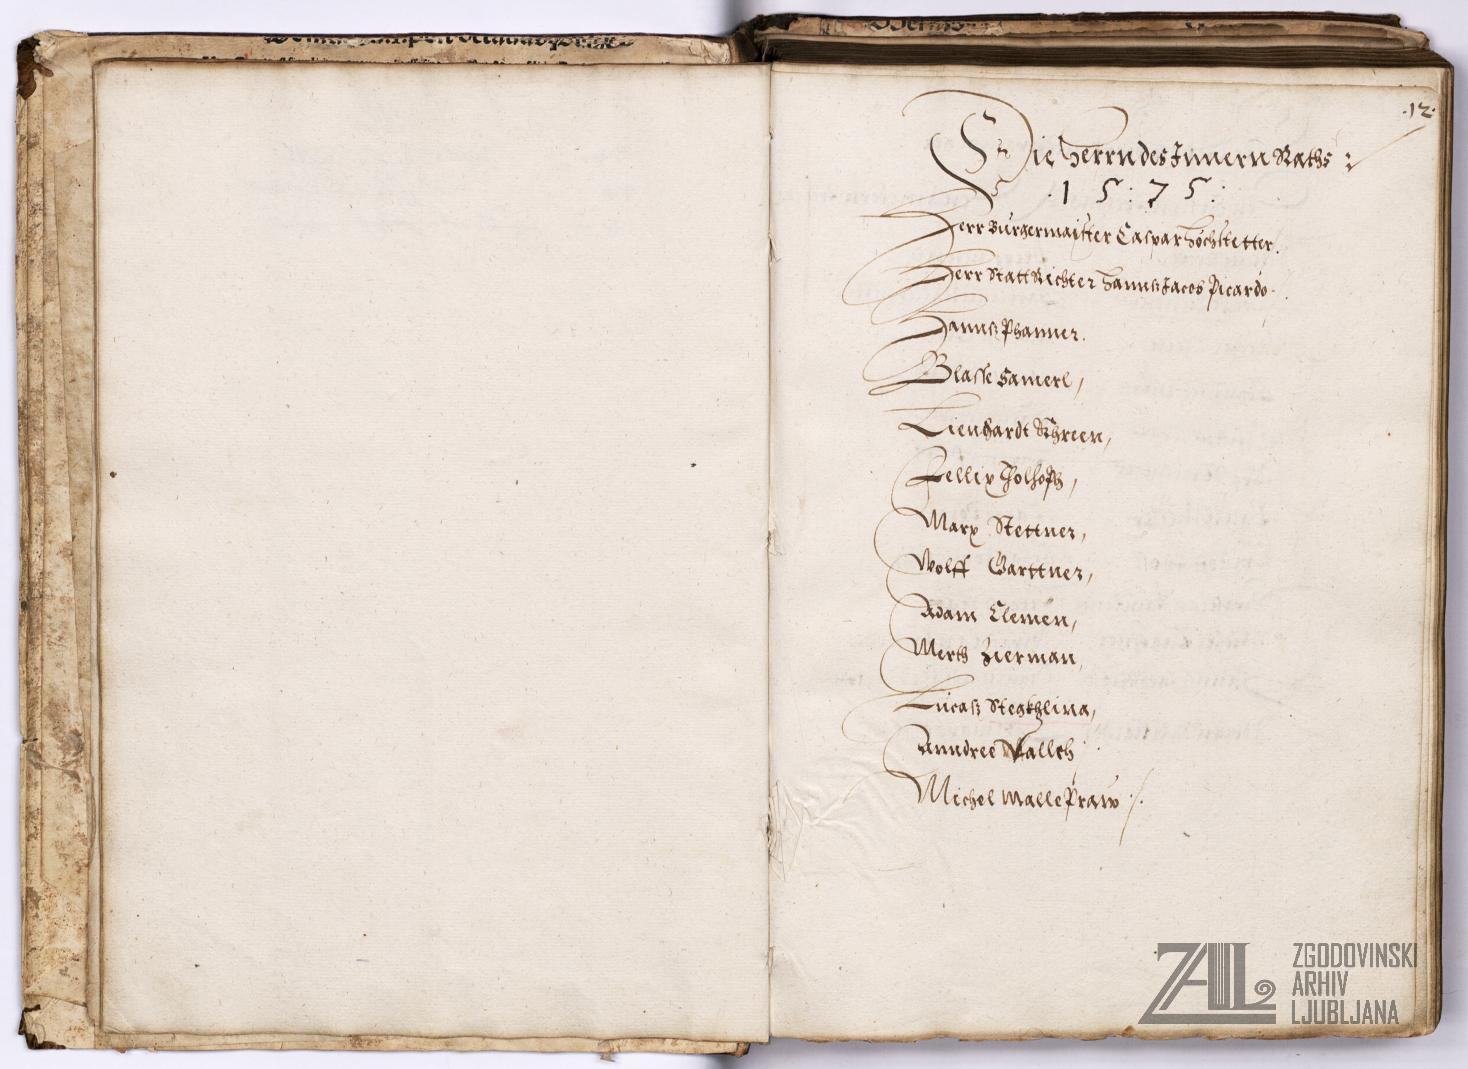 .12.
Die Herrn des Innern Raths
.1.5.7.5.
Herr Burgermaister Caspar Hochstetter.
Herr Statt Richter Hannß Jacob Picardo.
Hannß Phanner.
Blasse Samerl,
Lienhardt Khreen,
Fellix
Marx Stettner,
Wolff Garttner,
Adam Clemen,
Merth Zierman,
Lucaß
Anndree Falleth
Michel
ZAL
ZGODOVINSKI
ARHIV
LJUBLJANA